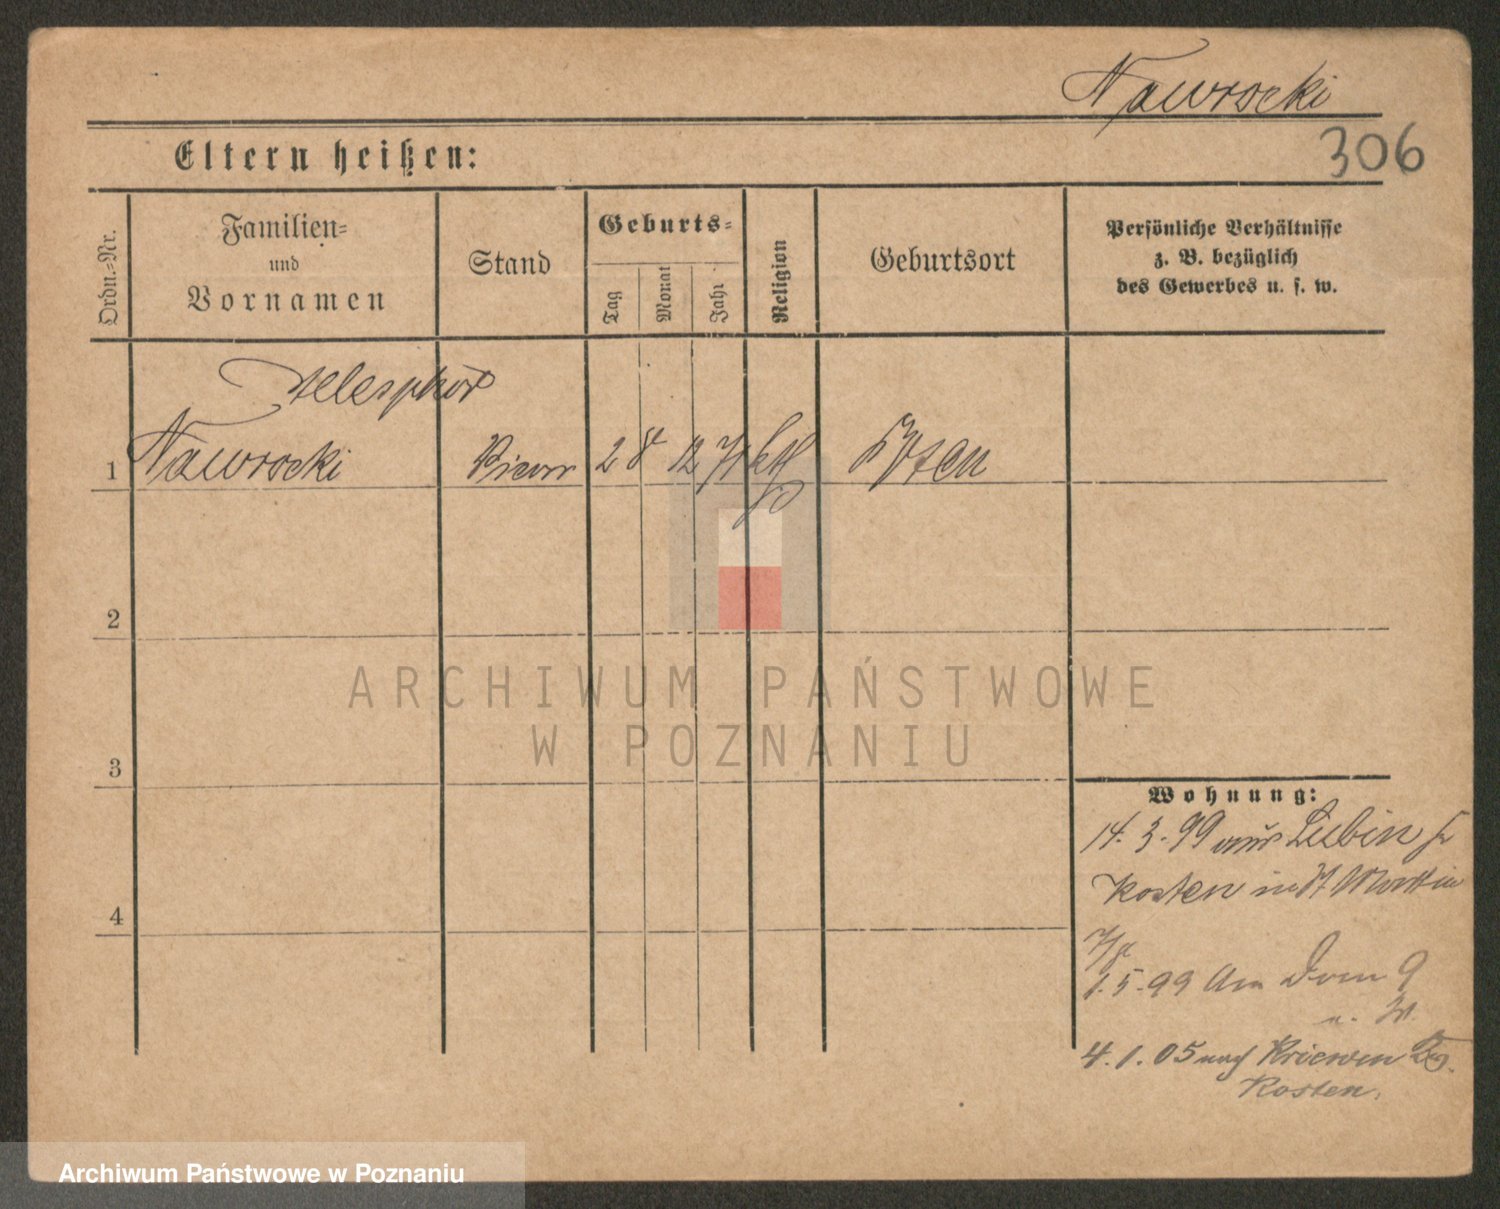 Nawrocki
306
Eltern heißen:
Ordn.=Nr.
Familien=
und
Vornamen
Stand
Geburts=
Tag
Monat
Jahr
Religion
Geburtsort
Persönliche Verhältnisse
z. B. bezüglich
des Gewerbes u. s. w.
Telesphor
1 Nawrocki Vicar 28 12 71 kth
2
ARCHIWUM PAŃSTWOWE
W POZNANIU
3
Wohnung:
14. 3. 99 aus Lubin
Kosten in St Martin
4
1. 5. 99 Am Dom 9
4. 1. 05 nach Kriewen
Kosten.
Archiwum Państwowe w Poznaniu